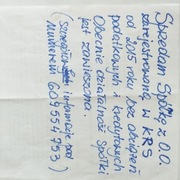 Sprzedam Spółkę z o.o.
zarejestrowaną w KRS
od 2015 roku bez obciążeń
podatkowych i kredytowych
Obecnie działalność Spółki
jest zawieszona.
( informacje pod
numerem 609554753 )